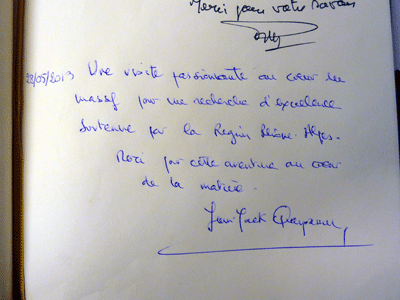 Merci pour votre
22/05/2013 Une visite passionnante au cœur du
massif pour une recherche d'excellence
soutenue par la Région Rhône-Alpes.
Merci pour cette aventure au cœur
de la matière.
Jean-Jack